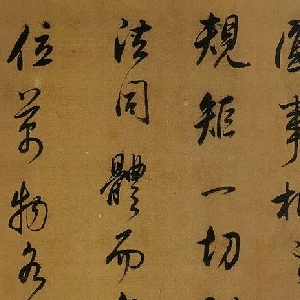 事相
規矩一切
法同體而
位萬物各